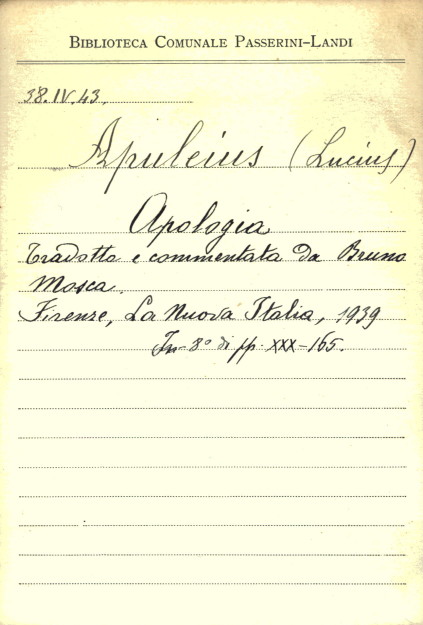 BIBLIOTECA COMUNALE PASSERINI-LANDI
38.IV.43.
Apuleius (Lucius)
Apologia
Tradotta e commentata da Bruno
Mosca.
Firenze, La Nuova Italia, 1939
In-8° di pp. XXX-165.